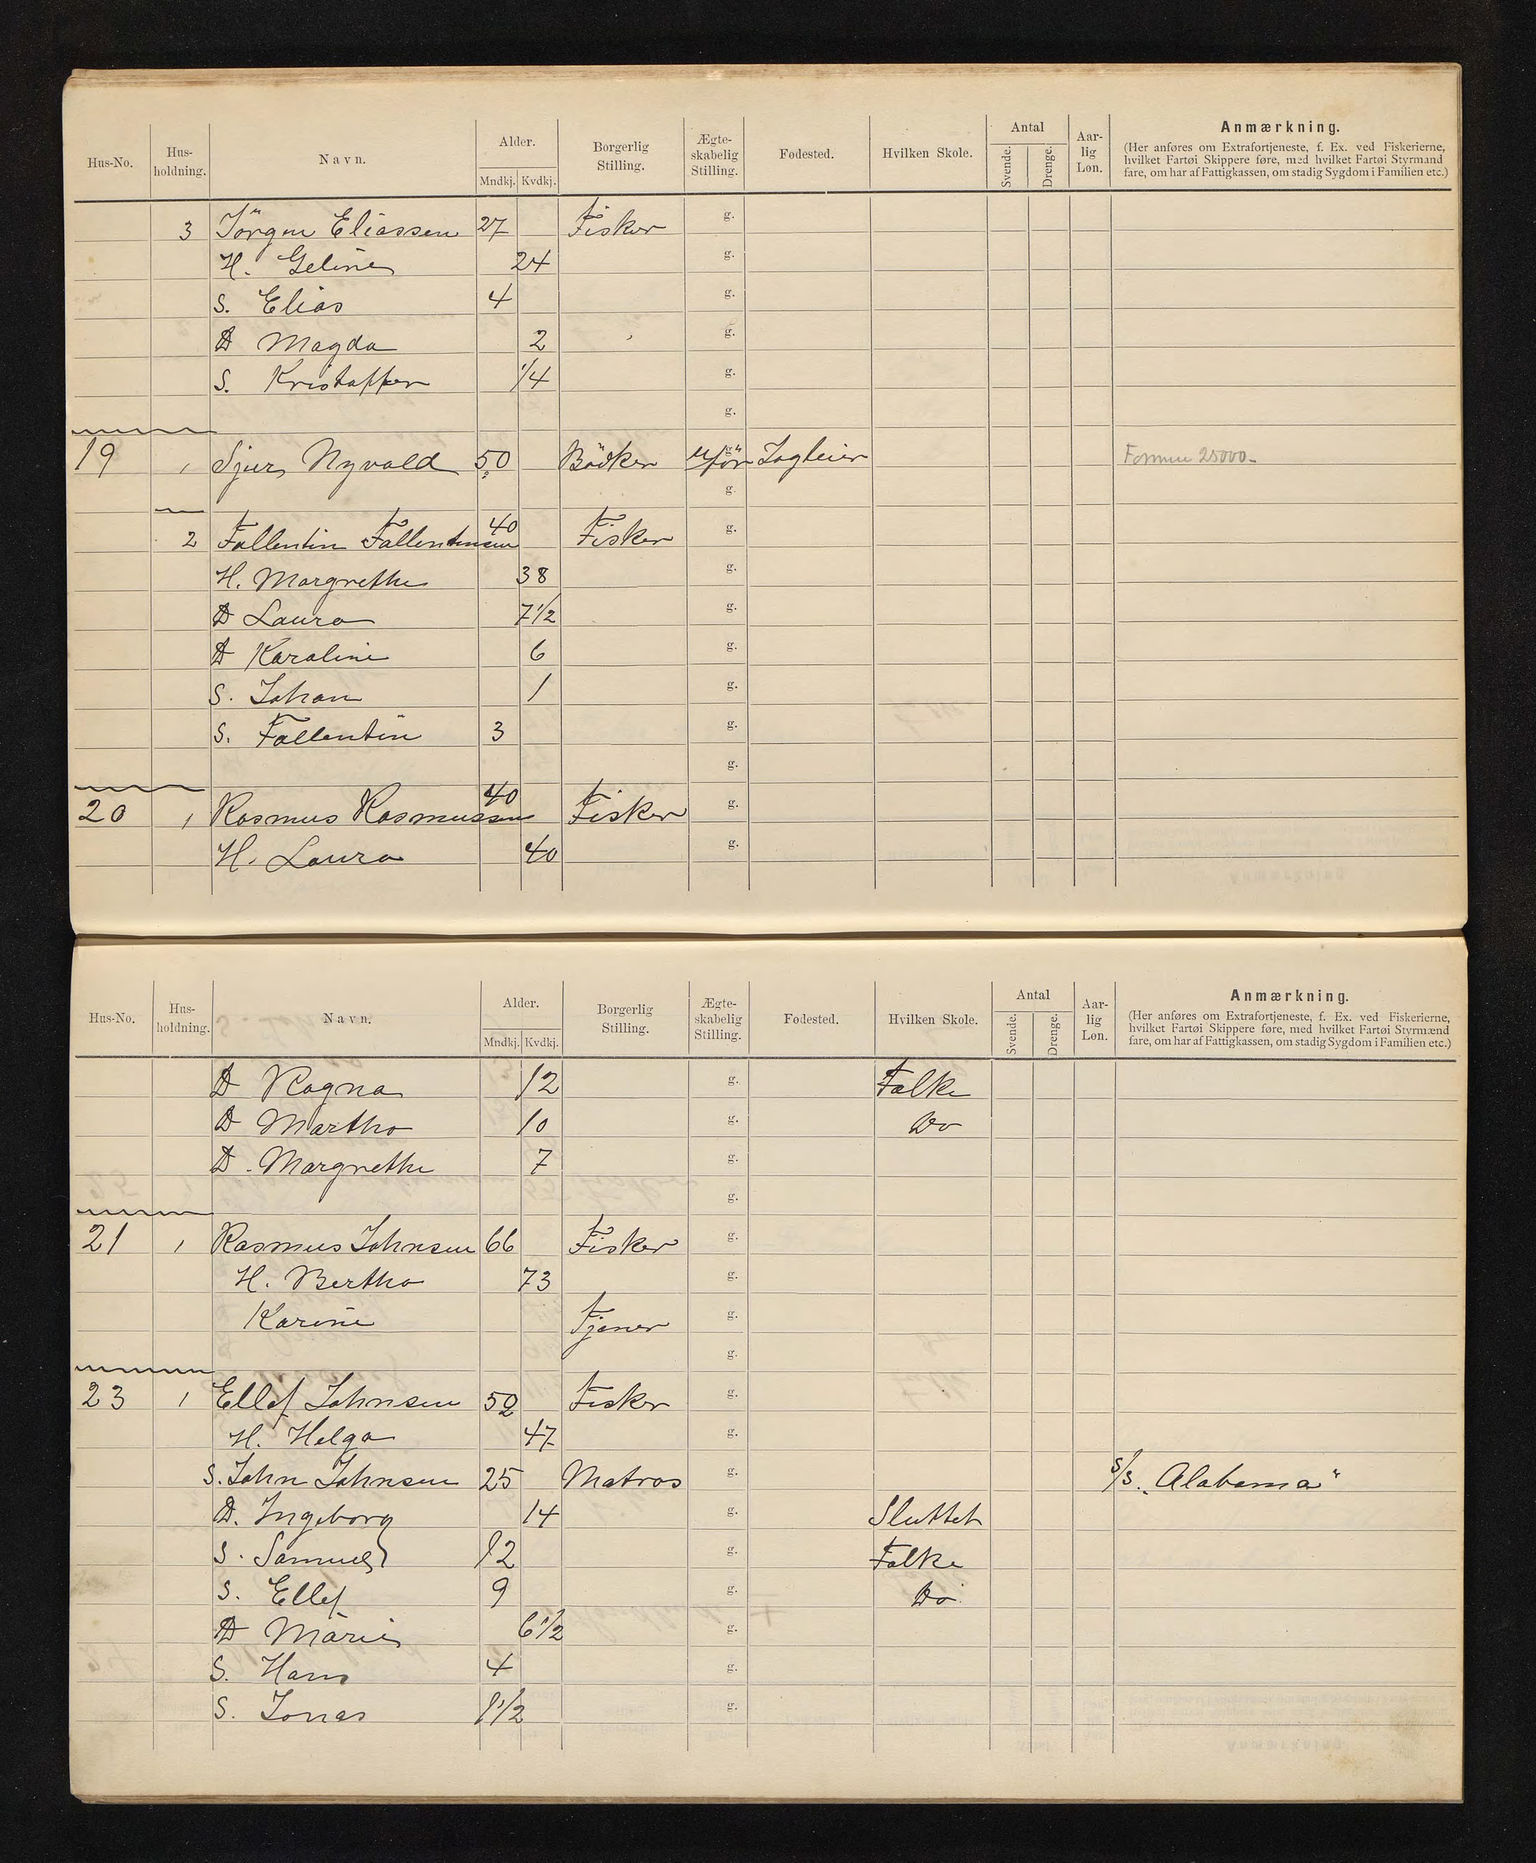 Hus-No. Hus-holdning. Navn. Alder. Mndkj. Kvdkj. Borgerlig Stilling. Ægte-skabelig Stilling. Fødested. Hvilken Skole. Antal Svende. Drenge. Aar-lig Løn. Anmærkning.
(Her anføres om Extrafortjeneste, f. Ex. ved Fiskerierne,
hvilket Fartøi Skippere føre, med hvilket Fartøi Styrmand
fare, om har af Fattigkassen, om stadig Sygdom i Familien etc.)
3 Jörgen Eliassen 27 Fisker g.
H. Geline 24 g.
S. Elias 4 g.
D Magda 2 g.
S. Kristoffer 1/4 g.
g.
19 1 Sjur Nyvold 50 Bödker Formue 25000.-
g.
2 Fallentin Fallentinsen 40 Fisker g.
H. Margrethe 38 g.
D Laura 7 1/2 g.
D Karoline 6 g.
S. Johan 1 g.
S. Fallentin 3 g.
g.
20 1 Rasmus Rasmussen 40 Fisker g.
H. Laura 40 g.
Hus-No. Hus-holdning. Navn. Alder. Mndkj. Kvdkj. Borgerlig Stilling. Ægte-skabelig Stilling. Fødested. Hvilken Skole. Antal Svende. Drenge. Aar-lig Løn. Anmærkning.
(Her anføres om Extrafortjeneste, f. Ex. ved Fiskerierne,
hvilket Fartøi Skippere føre, med hvilket Fartøi Styrmænd
fare, om har af Fattigkassen, om stadig Sygdom i Familien etc.)
D Ragna 12 g. Falke
D Martha 10 g. Do
D. Margrethe 7 g.
g.
21 1 Rasmus Johnsen 66 Fisker g.
H. Bertha 73 g.
Karine Tjener g.
g.
23 1 Ellef Johnsen 52 Fisker g.
H. Helga 47 g.
S. John Johnsen 25 Matros g. S/S. „Alabama"
D. Ingeborg 14 g. Sluttet
S. Samuel 12 g. Falke
S. Ellef 9 g. Do
D Marie 6 1/2 g.
S. Hans 4 g.
S. Jonas 1 1/2 g.